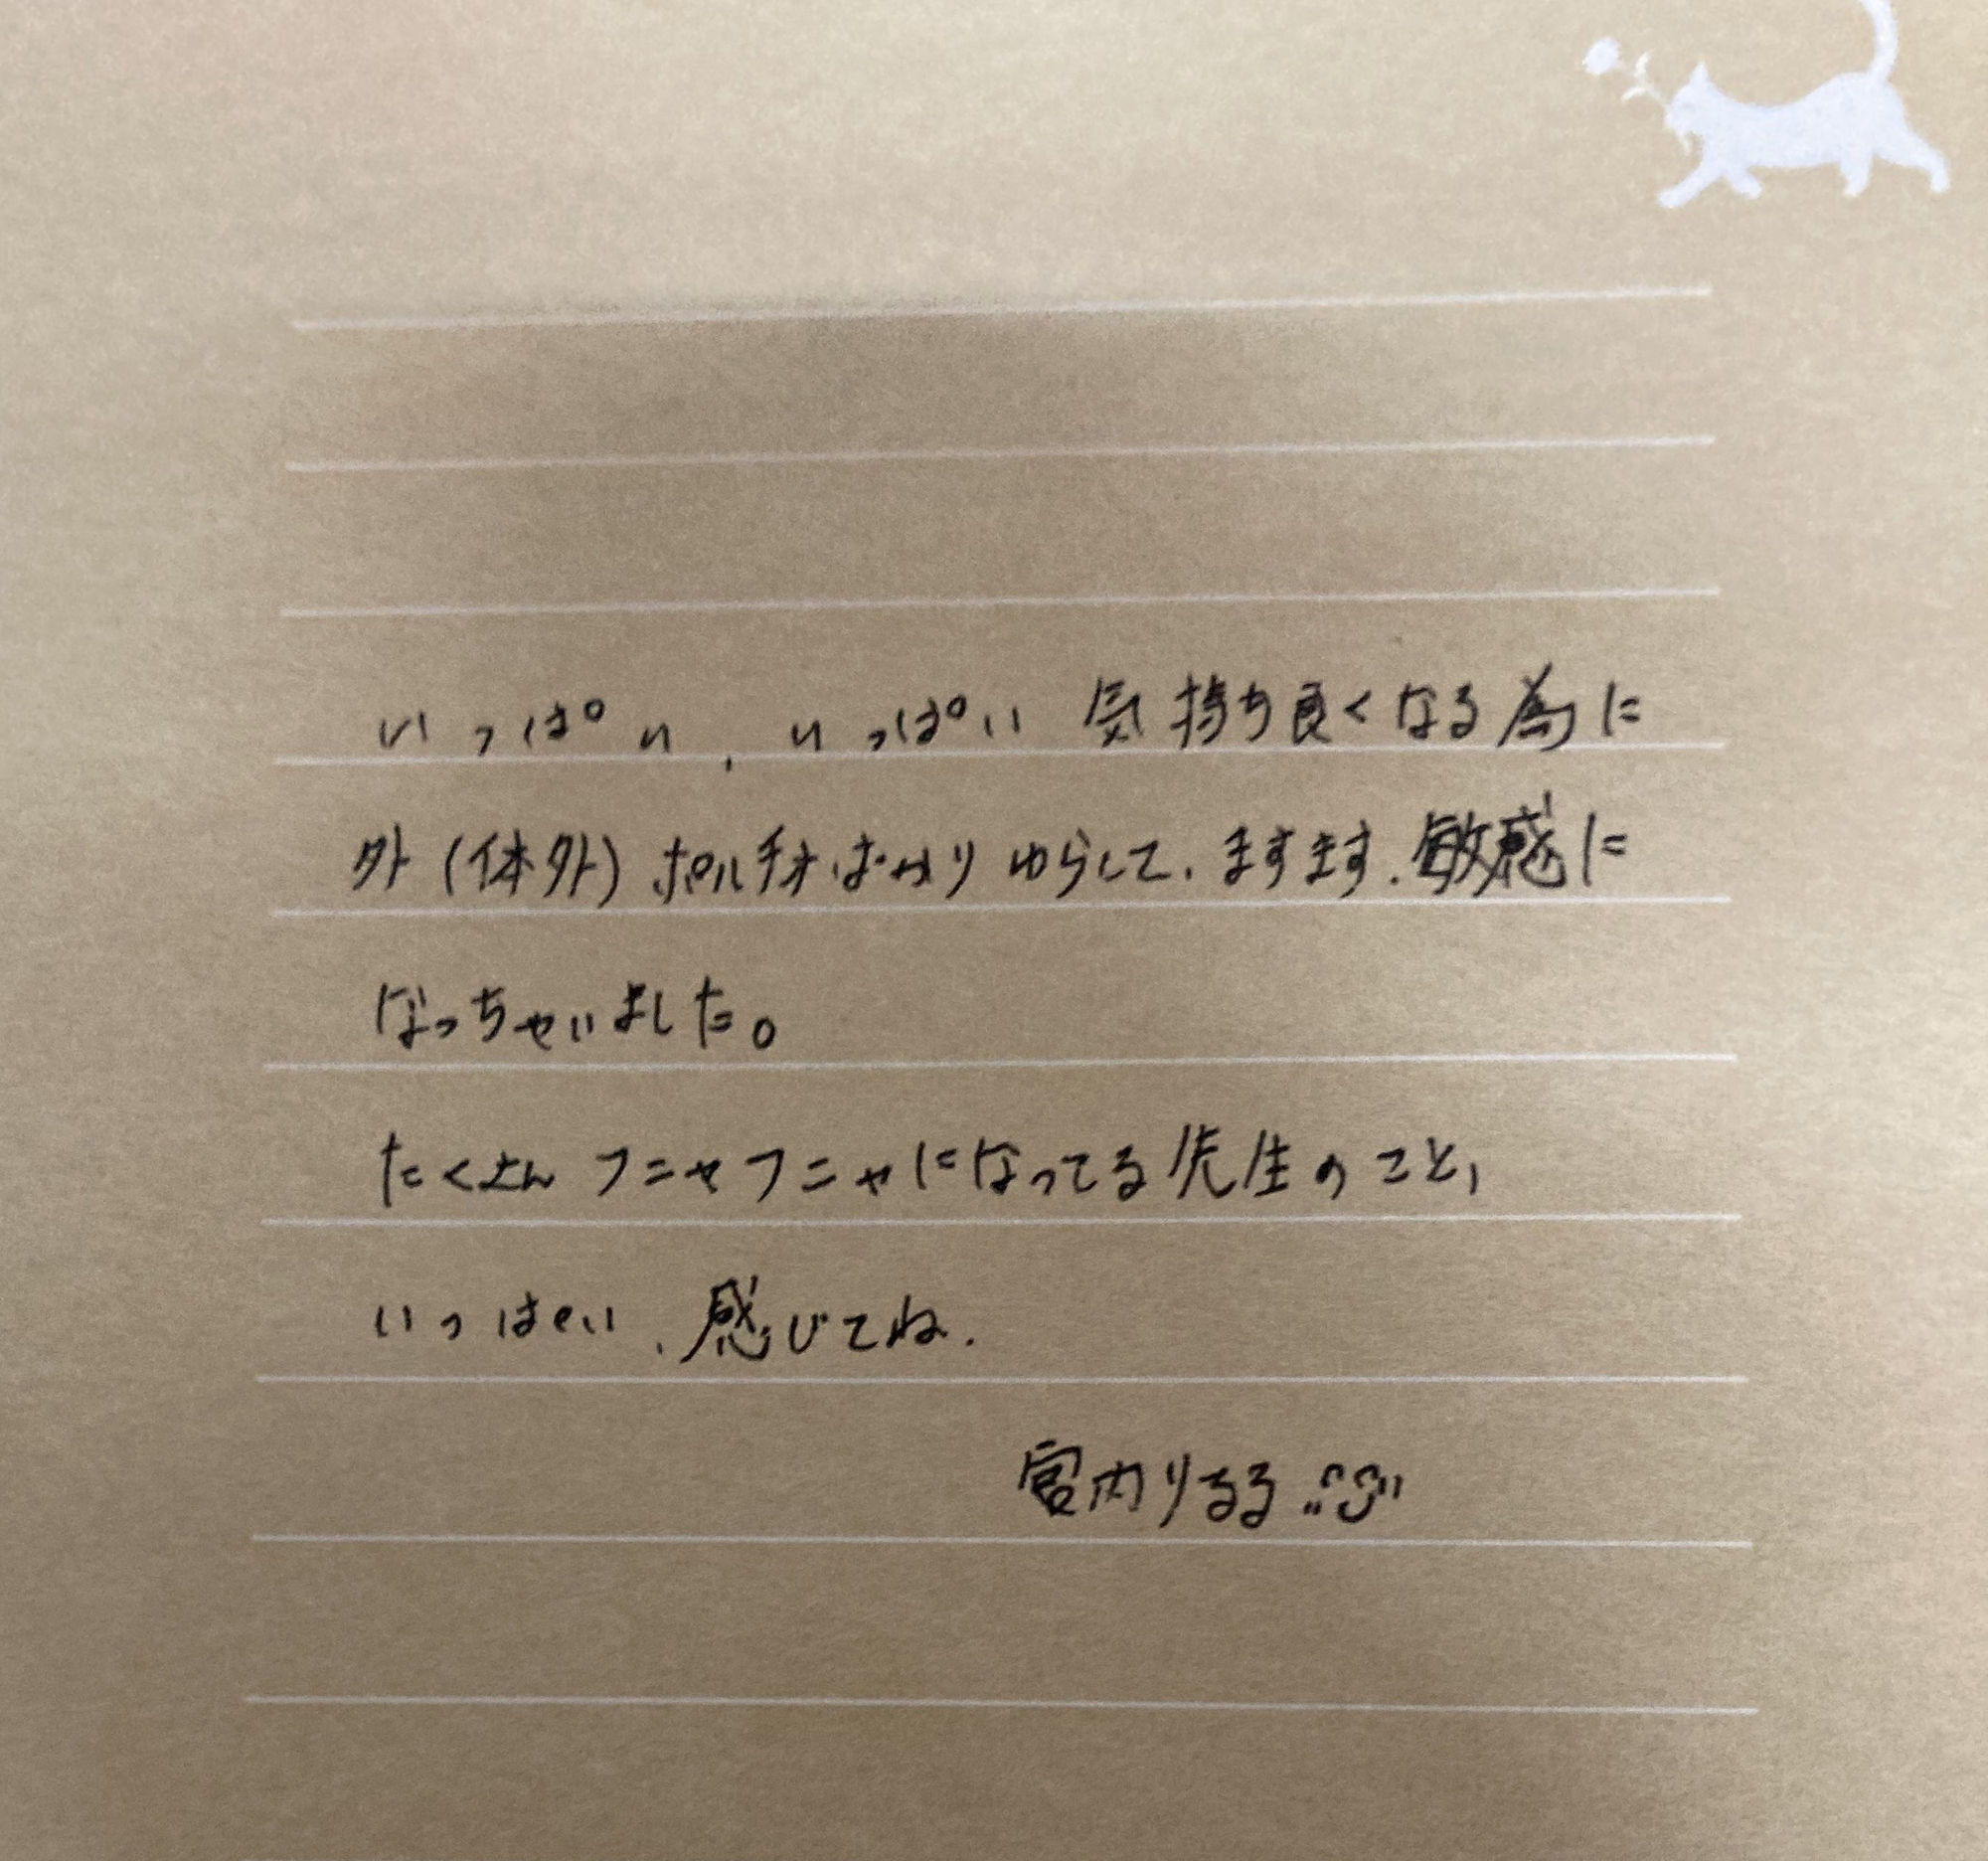 いっぱい、いっぱい 気持ち良くなる為に
外(体外)ポルチオばかりゆらして、ますます、敏感に
なっちゃいました。
たくさんフニャフニャになってる先生のこと、
いっぱい、感じてね.
宮内りるる